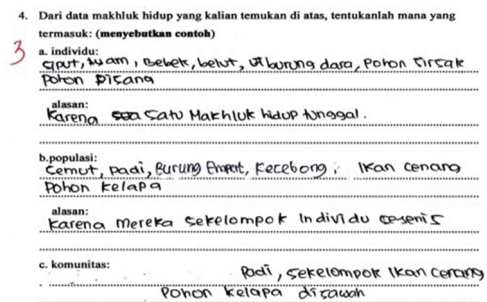 4. Dari data makhluk hidup yang kalian temukan di atas, tentukanlah mana yang
termasuk: (menyebutkan contoh)
3
a. individu:
siput, ayam, Bebek, belut, burung dara, Pohon Sirsak
Pohon Pisang
alasan:
Karena satu Makhluk hidup tunggal.
b.populasi:
Cemut, padi, Burung Emprit, Kecebong, Ikan cenang
Pohon Kelapa
alasan:
Karena mereka sekelompok Individu sesenis
c. komunitas:
Padi, sekelompok Ikan cenang
Pohon kelapa disawah